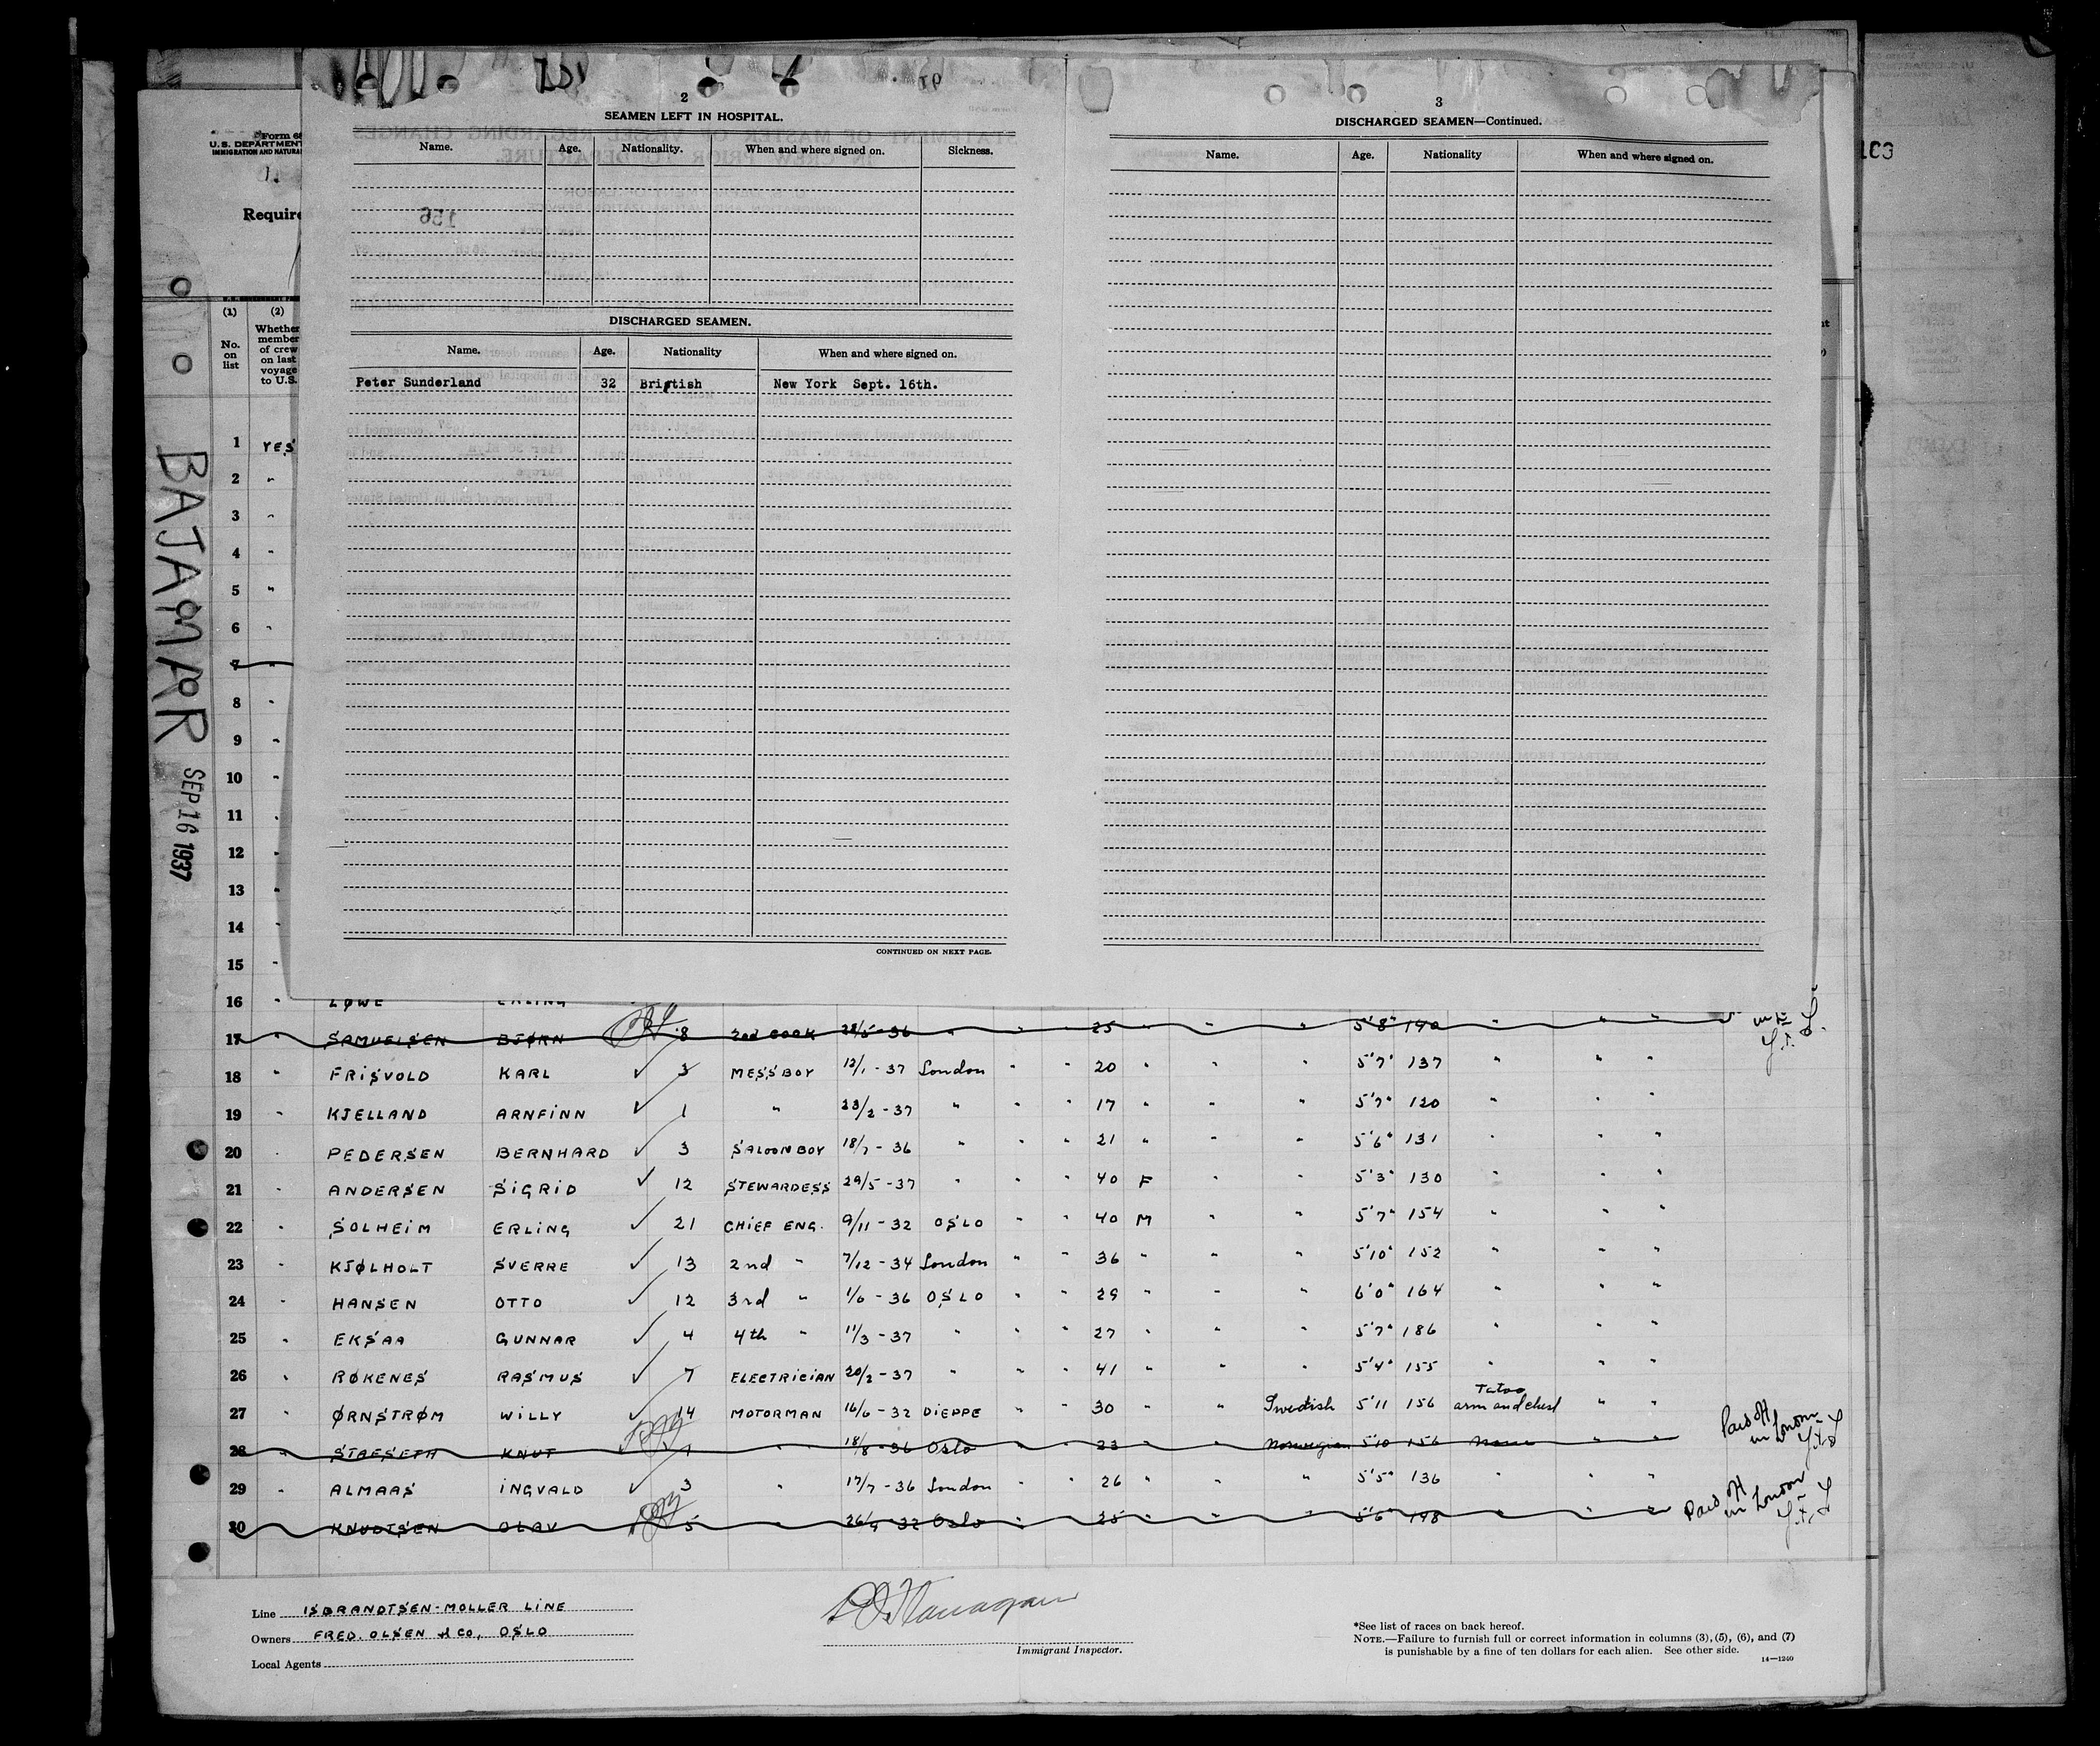 2
SEAMEN LEFT IN HOSPITAL.
Name. Age. Nationality. When and where signed on. Sickness.
DISCHARGED SEAMEN.
Name. Age. Nationality When and where signed on.
Peter Sunderland 32 British New York Sept. 16th.
CONTINUED ON NEXT PAGE.
3
DISCHARGED SEAMEN—Continued.
Name. Age. Nationality When and where signed on.
103
Form 68
U.S. DEPARTMENT
IMMIGRATION AND NATURA
Require
(1) (2)
No. on list
Whether member of crew on last voyage to U.S.
BAJAMAR SEP 16 1937
1 YES
2 "
3 "
4 "
5 "
6 "
7 "
8 "
9 "
10 "
11 "
12 "
13 "
14 "
15 "
16 " LØWE ERLING
17 SAMUELSEN BJØRN 8 2nd COOK 28/5-36 " " " 25 " " " 5'8" 190 " "
18 " FRISVOLD KARL 3 MESSBOY 12/1-37 London " " 20 " " " 5'7" 137 " " "
19 " KJELLAND ARNFINN 1 " 23/2-37 " " " 17 " " " 5'7" 120 " " "
20 " PEDERSEN BERNHARD 3 SALOONBOY 18/7-36 " " " 21 " " " 5'6" 131 " " "
21 " ANDERSEN SIGRID 12 STEWARDESS 29/5-37 " " " 40 F " " 5'3" 130 " " "
22 " SOLHEIM ERLING 21 CHIEF ENG. 9/11-32 OSLO " " 40 M " " 5'7" 154 " " "
23 " KJØLHOLT SVERRE 13 2nd " 7/12-34 London " " 36 " " " 5'10" 152 " " "
24 " HANSEN OTTO 12 3rd " 1/6-36 OSLO " " 29 " " " 6'0" 164 " " "
25 " EKSAA GUNNAR 4 4th " 11/3-37 " " " 27 " " " 5'7" 186 " " "
26 " RØKENES RASMUS 7 ELECTRICIAN 20/2-37 " " " 41 " " " 5'4" 155 " " "
27 " ØRNSTRØM WILLY 14 MOTORMAN 16/6-32 DIEPPE " " 30 " " Swedish 5'11 156 Tatoo arm and chest " "
28 " STAFSETH KNUT " 18/8-36 Oslo " " 23 " " Norwegian 5'10 156 None " " Paid off in London
29 " ALMAAS INGVALD 3 " 17/7-36 London " " 26 " " " 5'5" 136 " " "
30 KNUDTSEN OLAV 5 26/9-32 Oslo " 25 " " " 5'6" 148 " " " Paid off in London
Line ISBRANDTSEN-MOLLER LINE
Owners FRED. OLSEN & CO, OSLO
Local Agents
Immigrant Inspector.
*See list of races on back hereof.
NOTE.—Failure to furnish full or correct information in columns (3), (5), (6), and (7)
is punishable by a fine of ten dollars for each alien. See other side.
14—1240